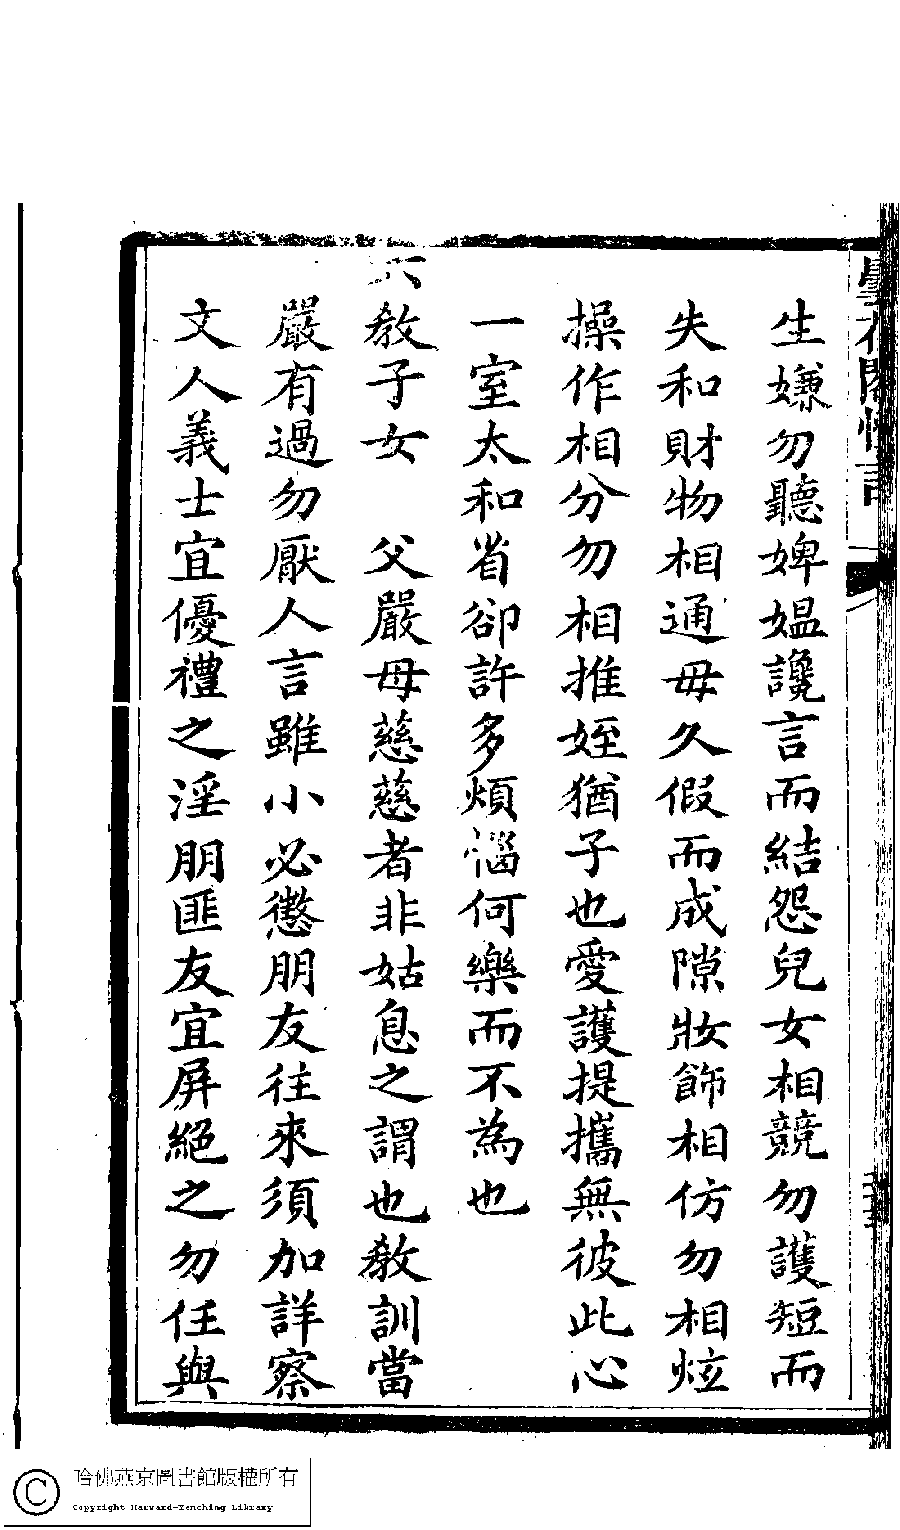 生嫌勿聽婢媼讒言而結怨兒女相競勿護短而
失和財物相通毋久假而成隙妝飾相仿勿相炫
操作相分勿相推姪猶子也愛護提攜無彼此心
一室太和省卻許多煩惱何樂而不為也
六教子女　父嚴母慈慈者非姑息之謂也教訓當
嚴有過勿厭人言雖小必懲朋友往來須加詳察
文人義士宜優禮之淫朋匪友宜屏絕之勿任與
哈佛燕京圖書館版權所有
Copyright Harvard-Yenching Library